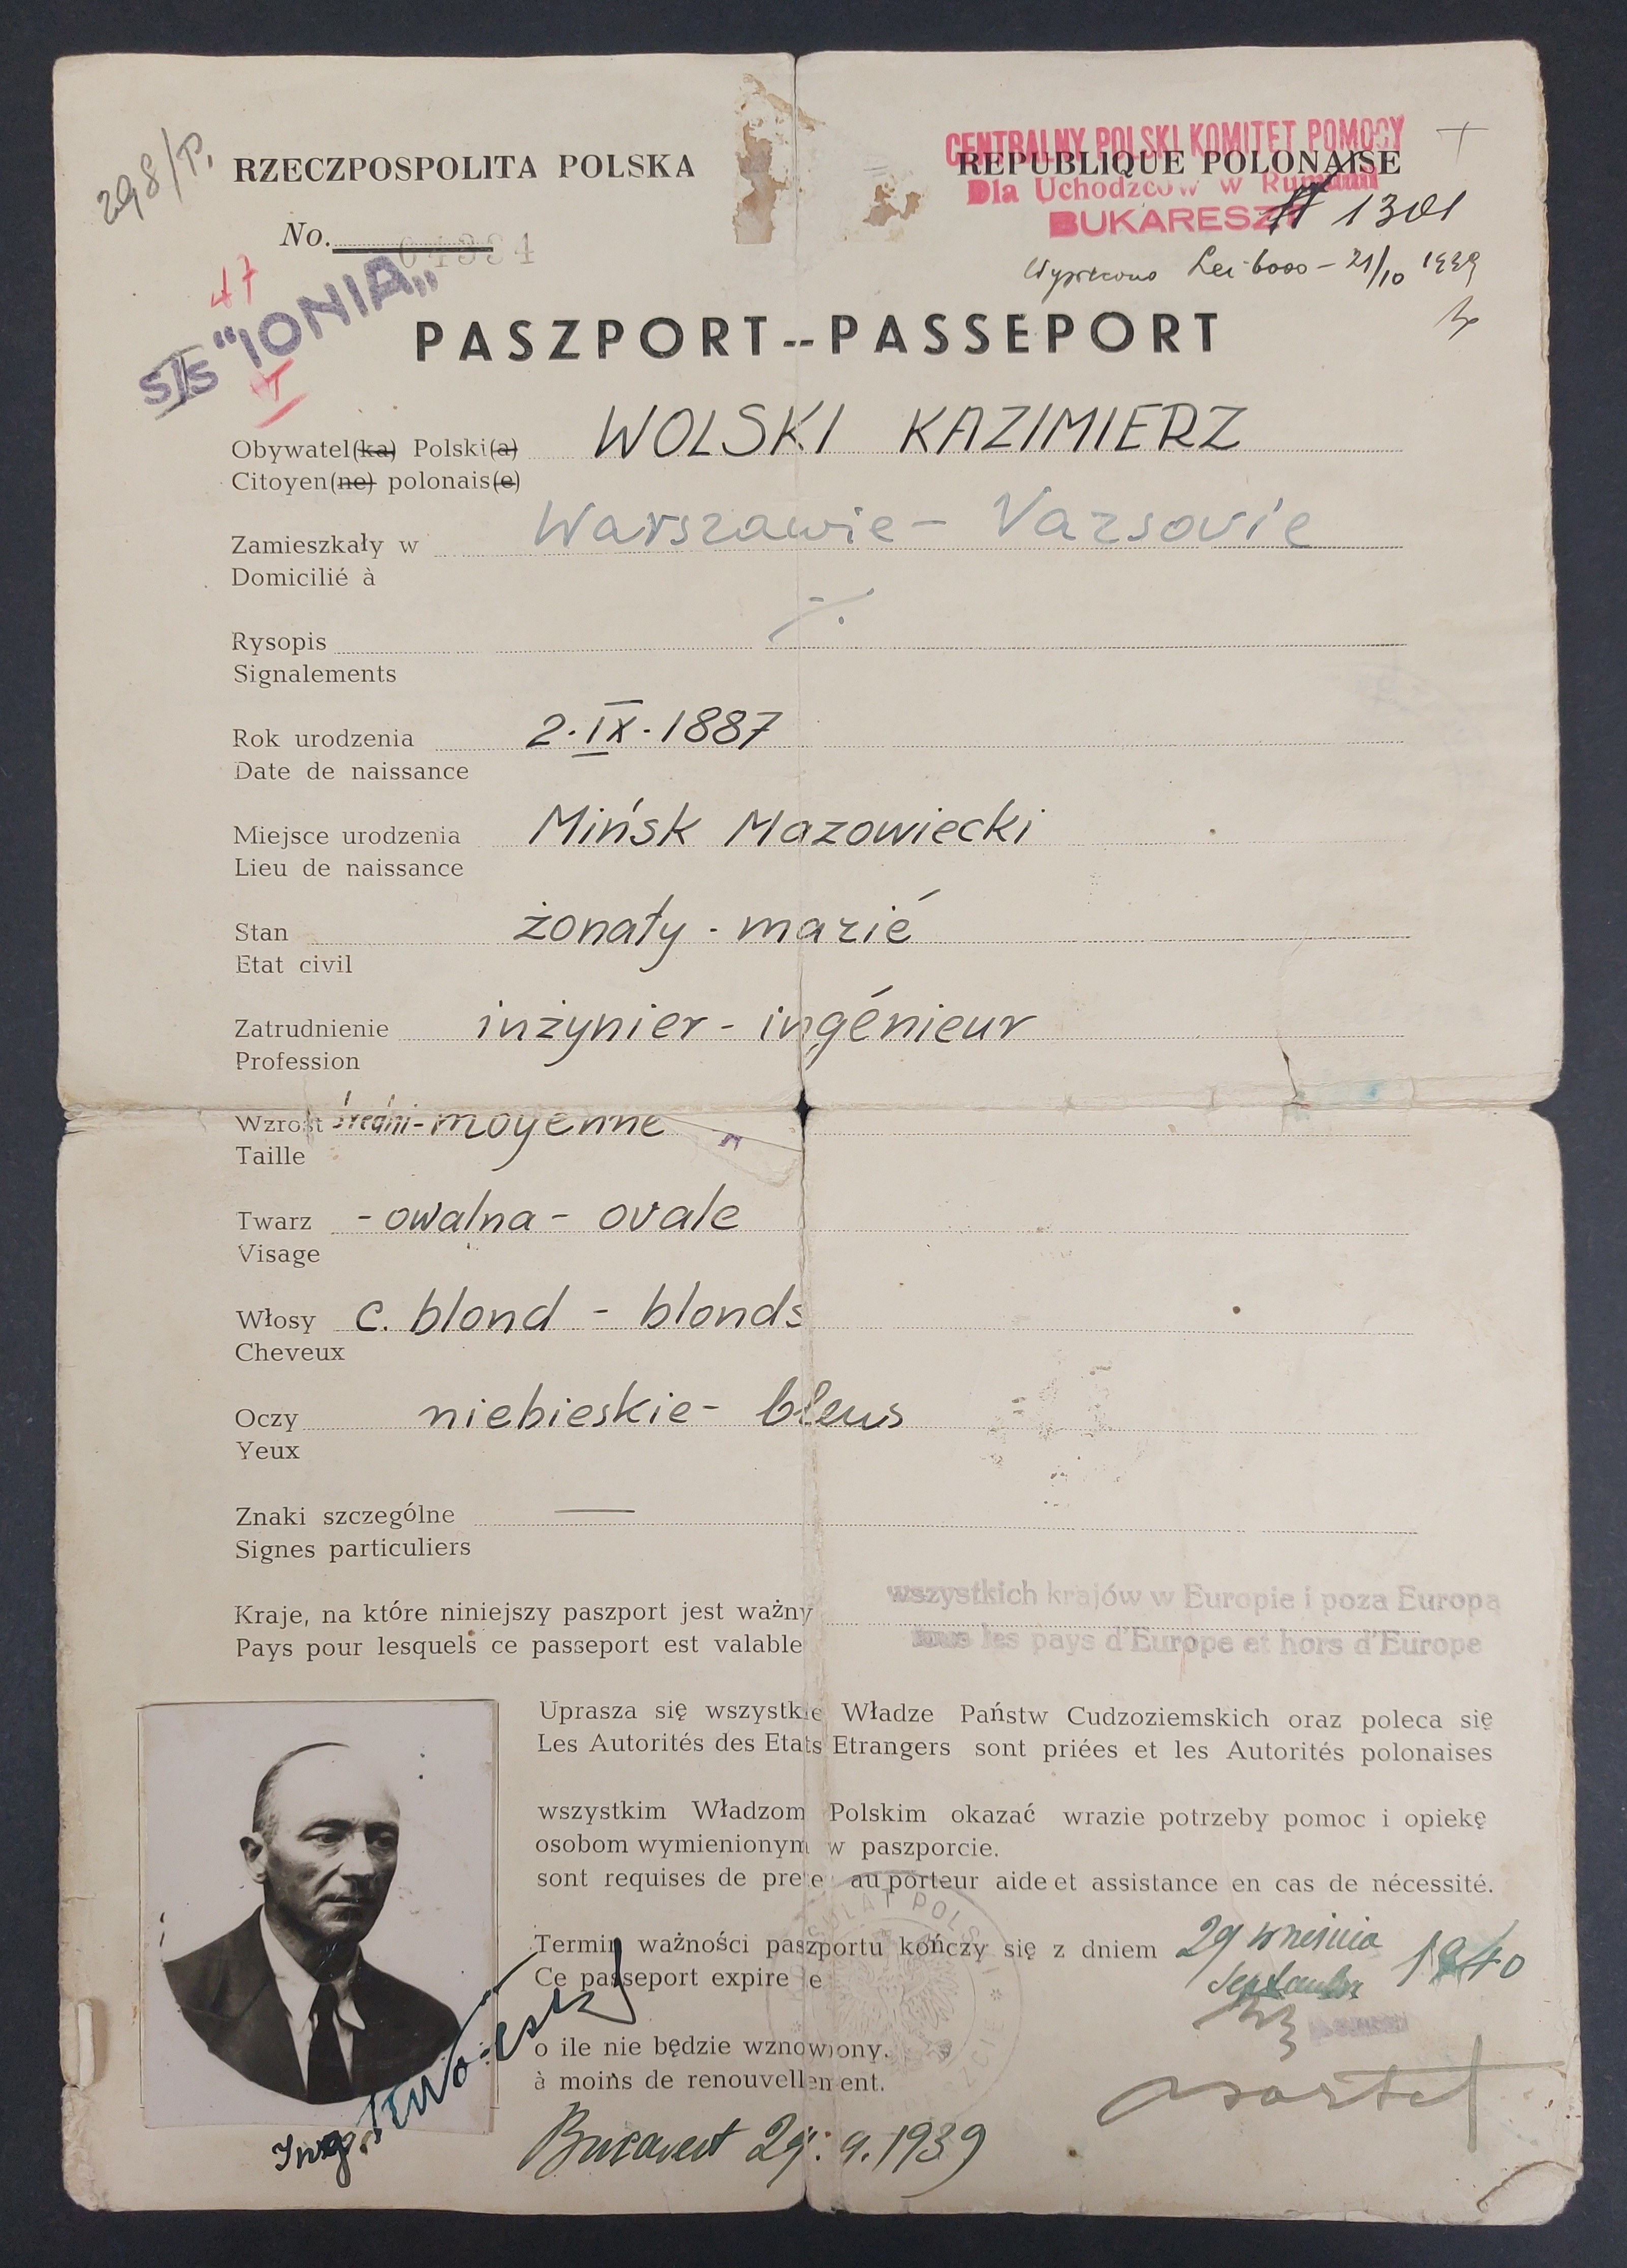 298/P.
RZECZPOSPOLITA POLSKA
CENTRALNY POLSKI KOMITET POMOCY
REPUBLIQUE POLONAISE
Dla Uchodźców w Rumunii
BUKARESZT
№ 1301
No.
47
S/S "IONIA"
Lei 6000 - 21/10 1939
PASZPORT--PASSEPORT
Obywatel(ka) Polski(a) WOLSKI KAZIMIERZ
Citoyen(ne) polonais(e)
Zamieszkały w Warszawie - Varsovie
Domicilié à
Rysopis
Signalements
Rok urodzenia 2·IX·1887
Date de naissance
Miejsce urodzenia Mińsk Mazowiecki
Lieu de naissance
Stan żonaty - marié
Etat civil
Zatrudnienie inżynier - ingénieur
Profession
Wzrost średni - moyenne
Taille
Twarz - owalna - ovale
Visage
Włosy c. blond - blonds
Cheveux
Oczy niebieskie - bleus
Yeux
Znaki szczególne —
Signes particuliers
wszystkich krajów w Europie i poza Europą
Kraje, na które niniejszy paszport jest ważny
tous les pays d'Europe et hors d'Europe
Pays pour lesquels ce passeport est valable
Uprasza się wszystkie Władze Państw Cudzoziemskich oraz poleca się
Les Autorités des Etats Etrangers sont priées et les Autorités polonaises
wszystkim Władzom Polskim okazać wrazie potrzeby pomoc i opiekę
osobom wymienionym w paszporcie.
sont requises de preter au porteur aide et assistance en cas de nécessité.
Termin ważności paszportu kończy się z dniem 29 września 1940
Ce passeport expire le
o ile nie będzie wznowiony.
à moins de renouvellement.
Bucarest 29. 9. 1939